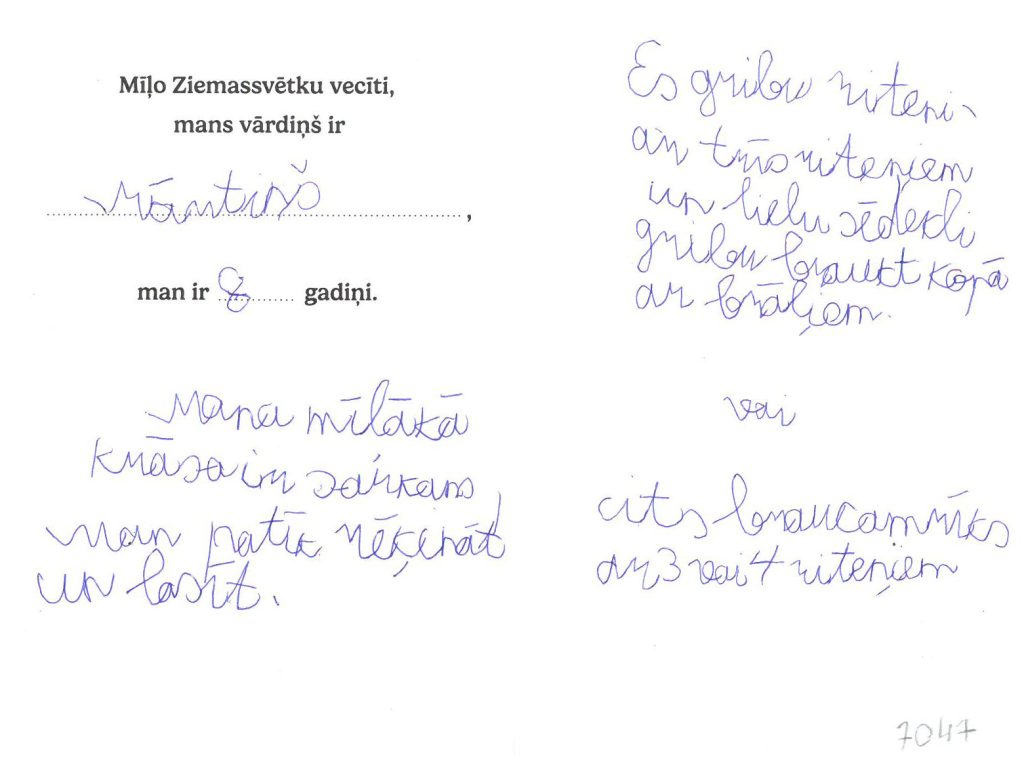 Mīļo Ziemassvētku vecīti,
mans vārdiņš ir
Mārtiņš,
man ir 8 gadiņi.
Mana mīļākā
krāsa ir sarkans,
Man patīk rēķināt
un lasīt.
Es gribu riteni
ar trīs riteņiem
un lielu sēdekli
gribu braukt kopā
ar brāļiem.
vai
cits braucamrīks
ar 3 vai 4 riteņiem
7047